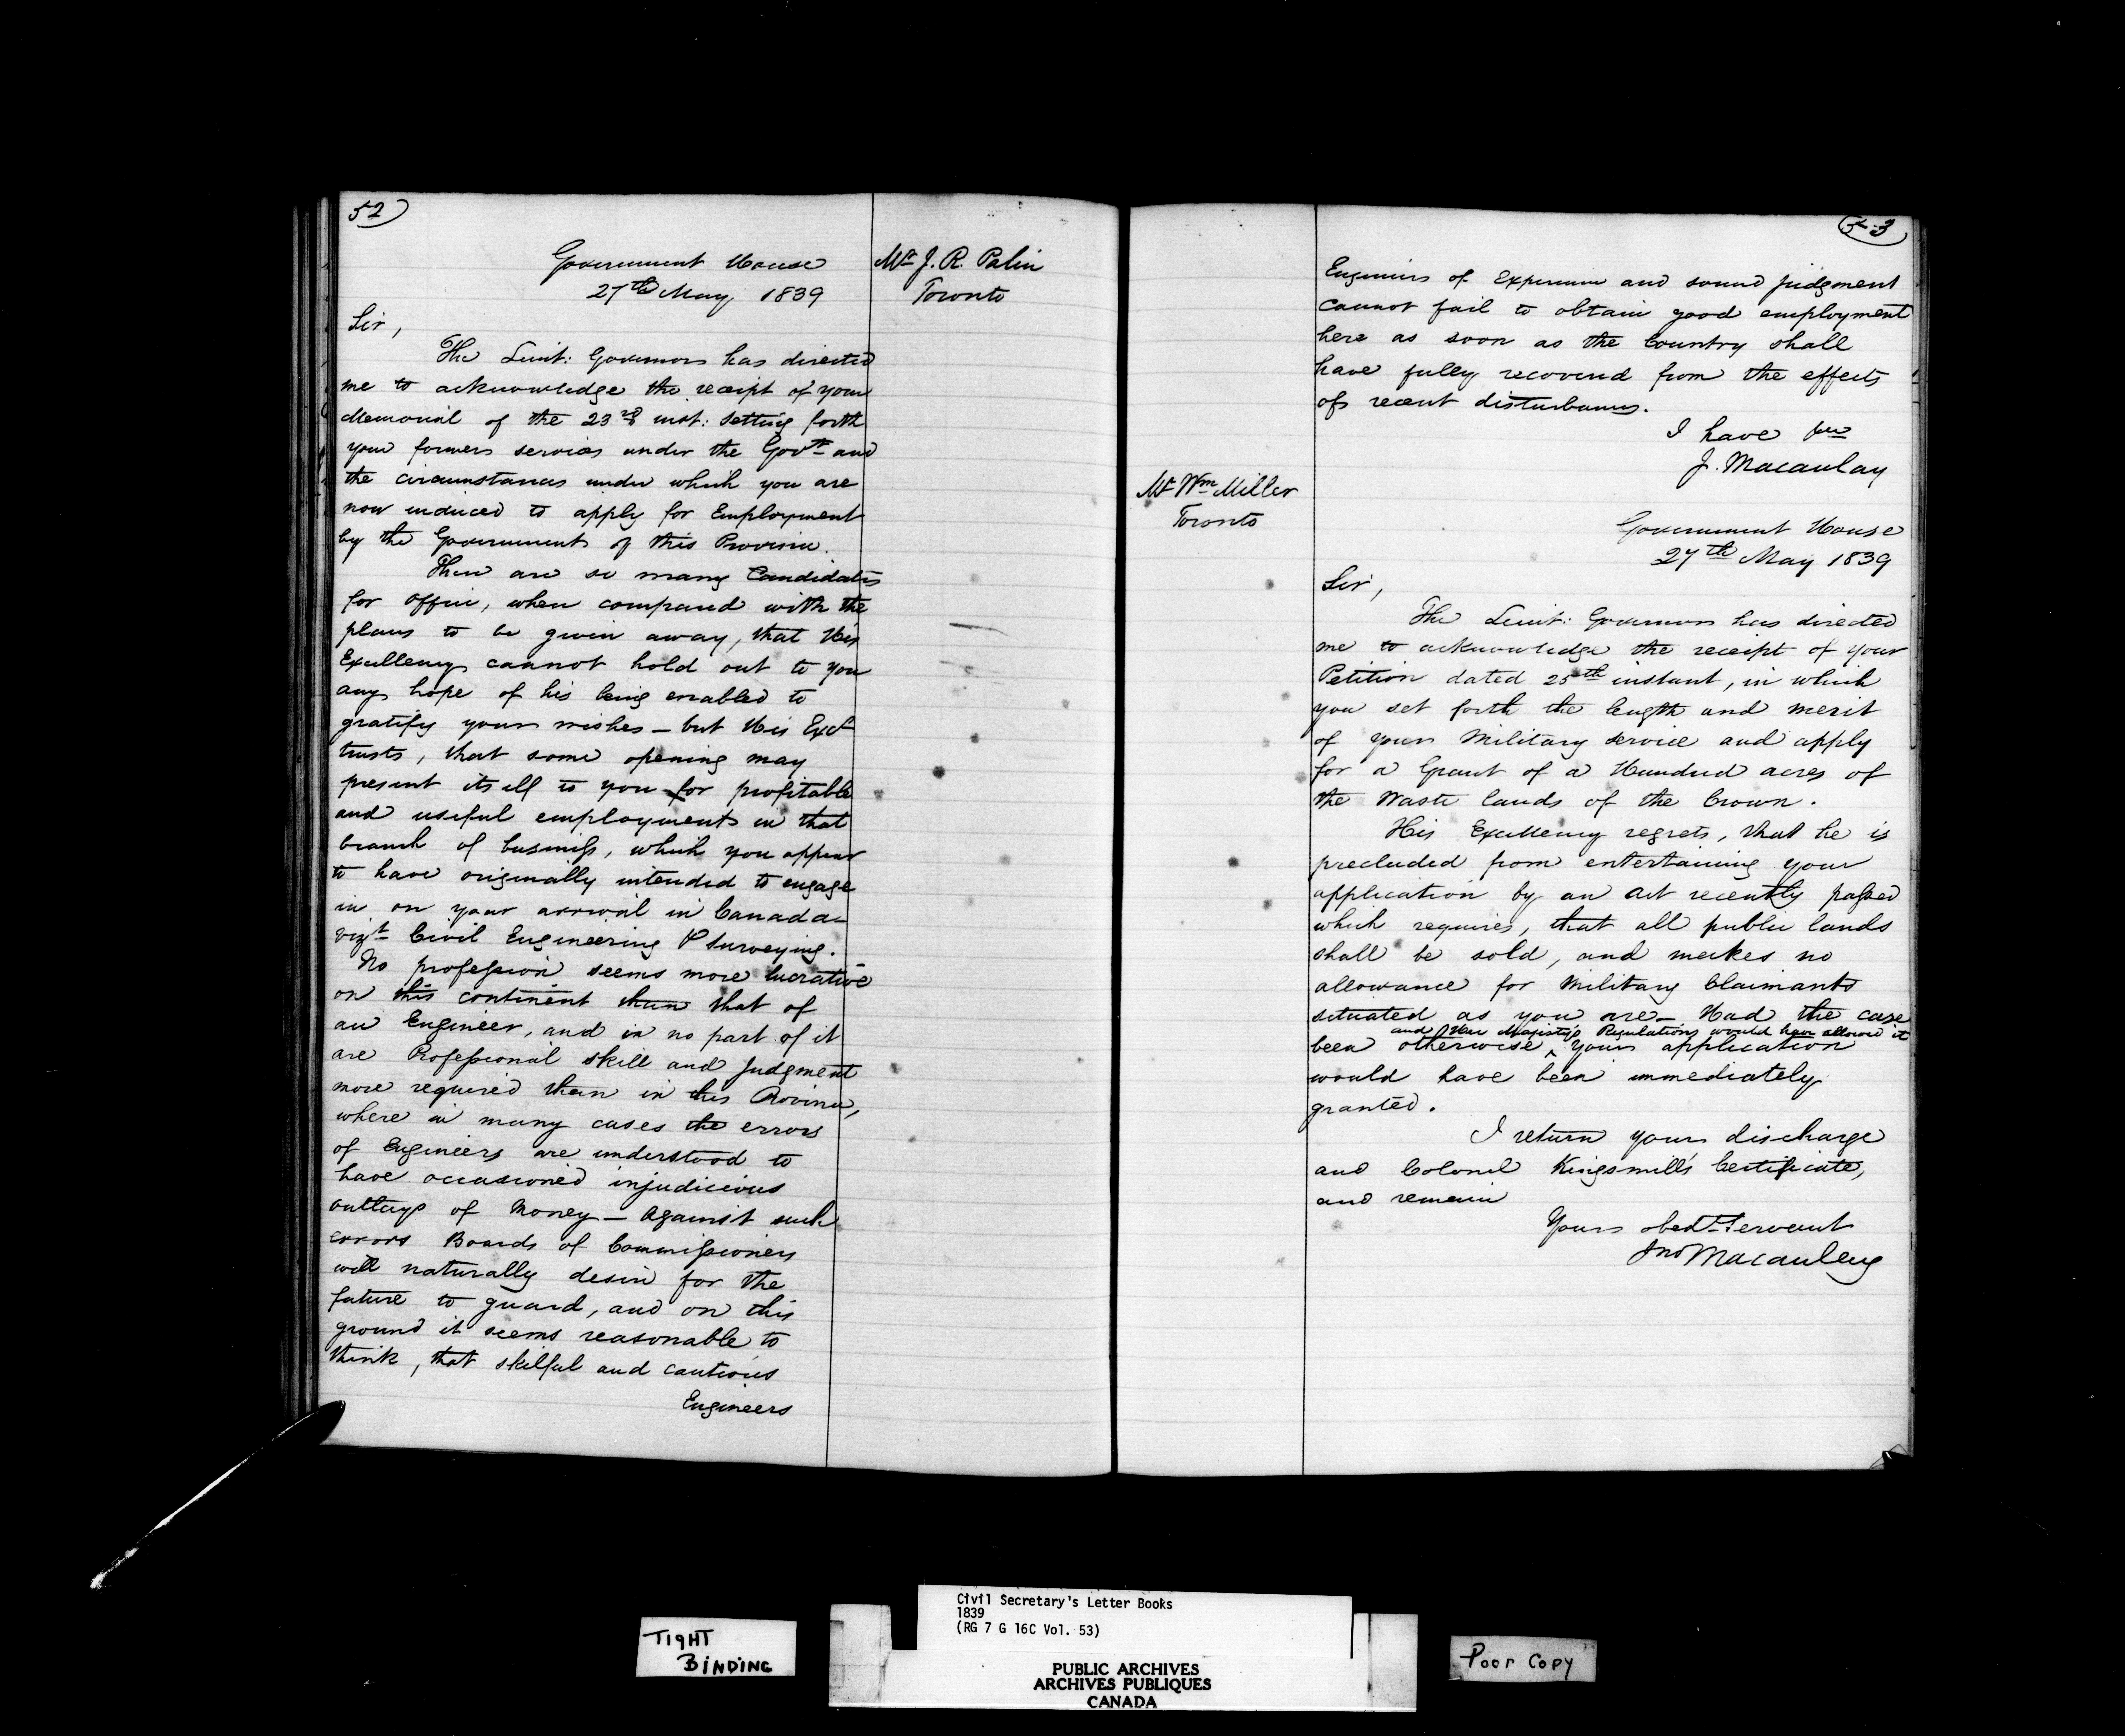 52
Government House
27th May 1839
Mr J. R. Palin
Toronto
Sir,
The Lieut: Governor has directed
me to acknowledge the receipt of your
Memorial of the 23rd inst: setting forth
your former services under the Govt and
the circumstances under which you are
now induced to apply for Employment
by the Government of this Province.
There are so many Candidates
for office, when compared with the
places to be given away, that His
Excellency cannot hold out to you
any hope of his being enabled to
gratify your wishes — but His Excy
trusts, that some opening may
present itself to you for profitable
and useful employment in that
branch of business, which you appear
to have originally intended to engage
in on your arrival in Canada—
vizt Civil Engineering & Surveying.
No profession seems more lucrative
on this continent than that of
an Engineer, and in no part of it
are Professional skill and Judgment
more required than in this Province,
where in many cases the errors
of Engineers are understood to
have occasioned injudicious
outlays of Money — Against such
errors Boards of Commissioners
will naturally desire for the
future to guard, and on this
ground it seems reasonable to
think, that skilful and cautious
Engineers
53
Engineers of Experience and sound judgment
cannot fail to obtain good employment
here as soon as the Country shall
have fully recovered from the effects
of recent disturbances.
I have &c
J. Macaulay
Mr Wm Miller
Toronto
Government House
27th May 1839
Sir,
The Lieut: Governor has directed
me to acknowledge the receipt of your
Petition dated 25th instant, in which
you set forth the length and merit
of your Military service and apply
for a Grant of a Hundred acres of
the Waste lands of the Crown.
His Excellency regrets, that he is
precluded from entertaining your
application by an Act recently passed
which requires, that all public lands
shall be sold, and makes no
allowance for Military Claimants
situated as you are — Had the case
and Her Majesty's Regulations would have allowed it
been otherwise ^ your application
would have been immediately
granted.
I return your discharge
and Colonel Kingsmill's Certificate,
and remain
Yours obedt Servant
Jno Macaulay
TIGHT
BINDING
Civil Secretary's Letter Books
1839
(RG 7 G 16C Vol. 53)
PUBLIC ARCHIVES
ARCHIVES PUBLIQUES
CANADA
Poor Copy